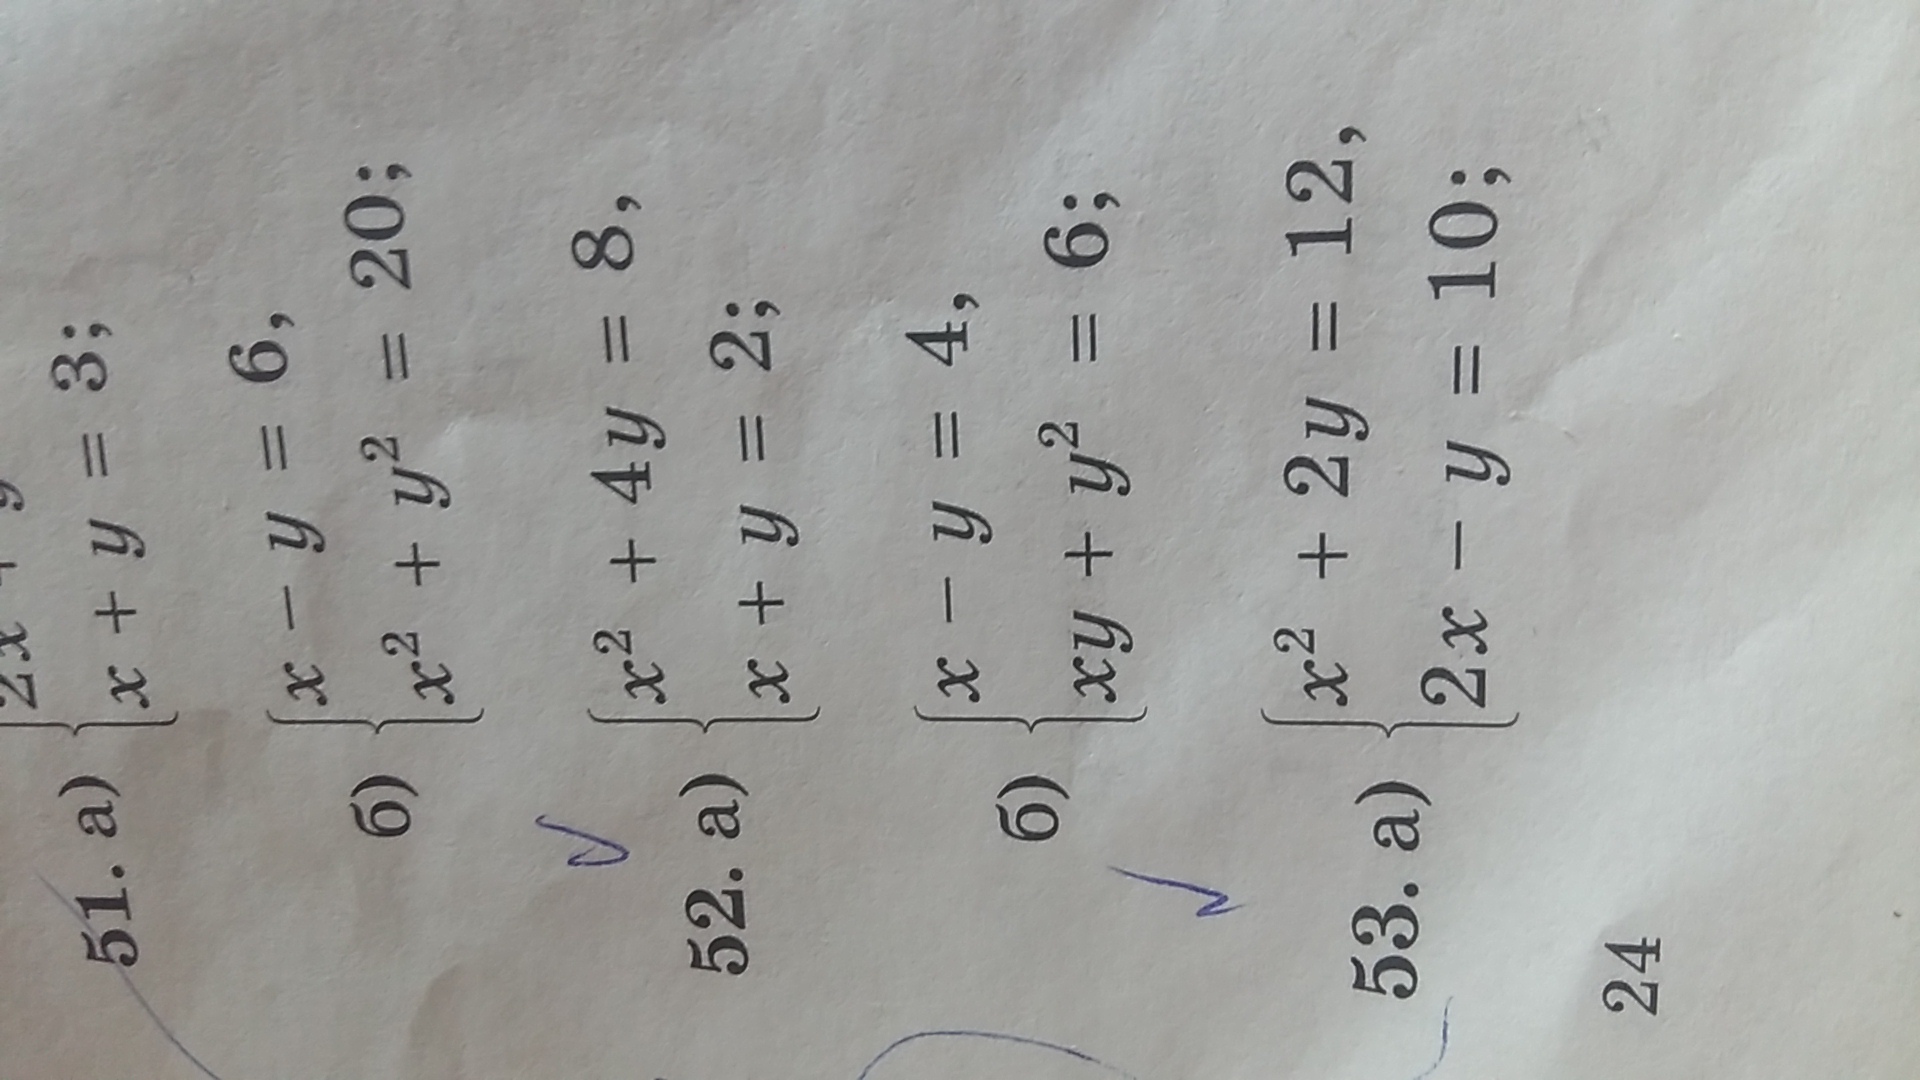 2x + y
51. а) { x + y = 3;
б) { x − y = 6,
x² + y² = 20;
52. а) { x² + 4y = 8,
x + y = 2;
б) { x − y = 4,
xy + y² = 6;
53. а) { x² + 2y = 12,
2x − y = 10;
24